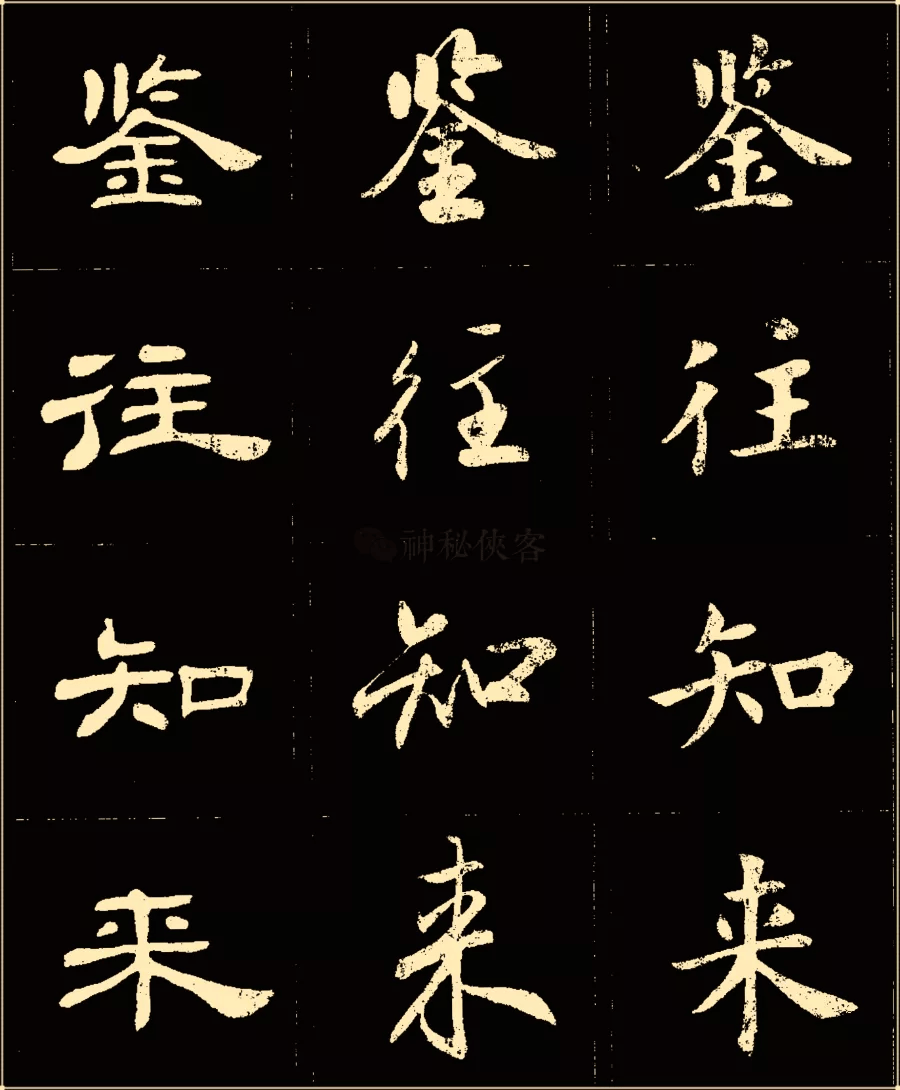 鉴鉴鉴
往往往
知知知
神秘侠客
来来来